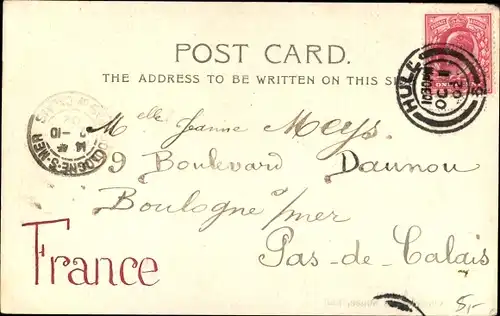 POST CARD.
THE ADDRESS TO BE WRITTEN ON THIS
HULL
OC 11
02
BOULOGNE-S-MER
2-10
Melle Jeanne Meys
9 Boulevard Daunou
Boulogne s/mer
France
Pas-de-Calais
5,-